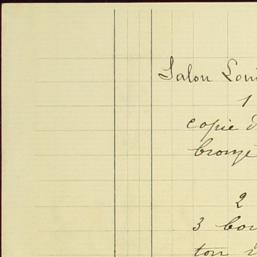 Salon Loui
1
copie d
bronze
2
3 bou
ton